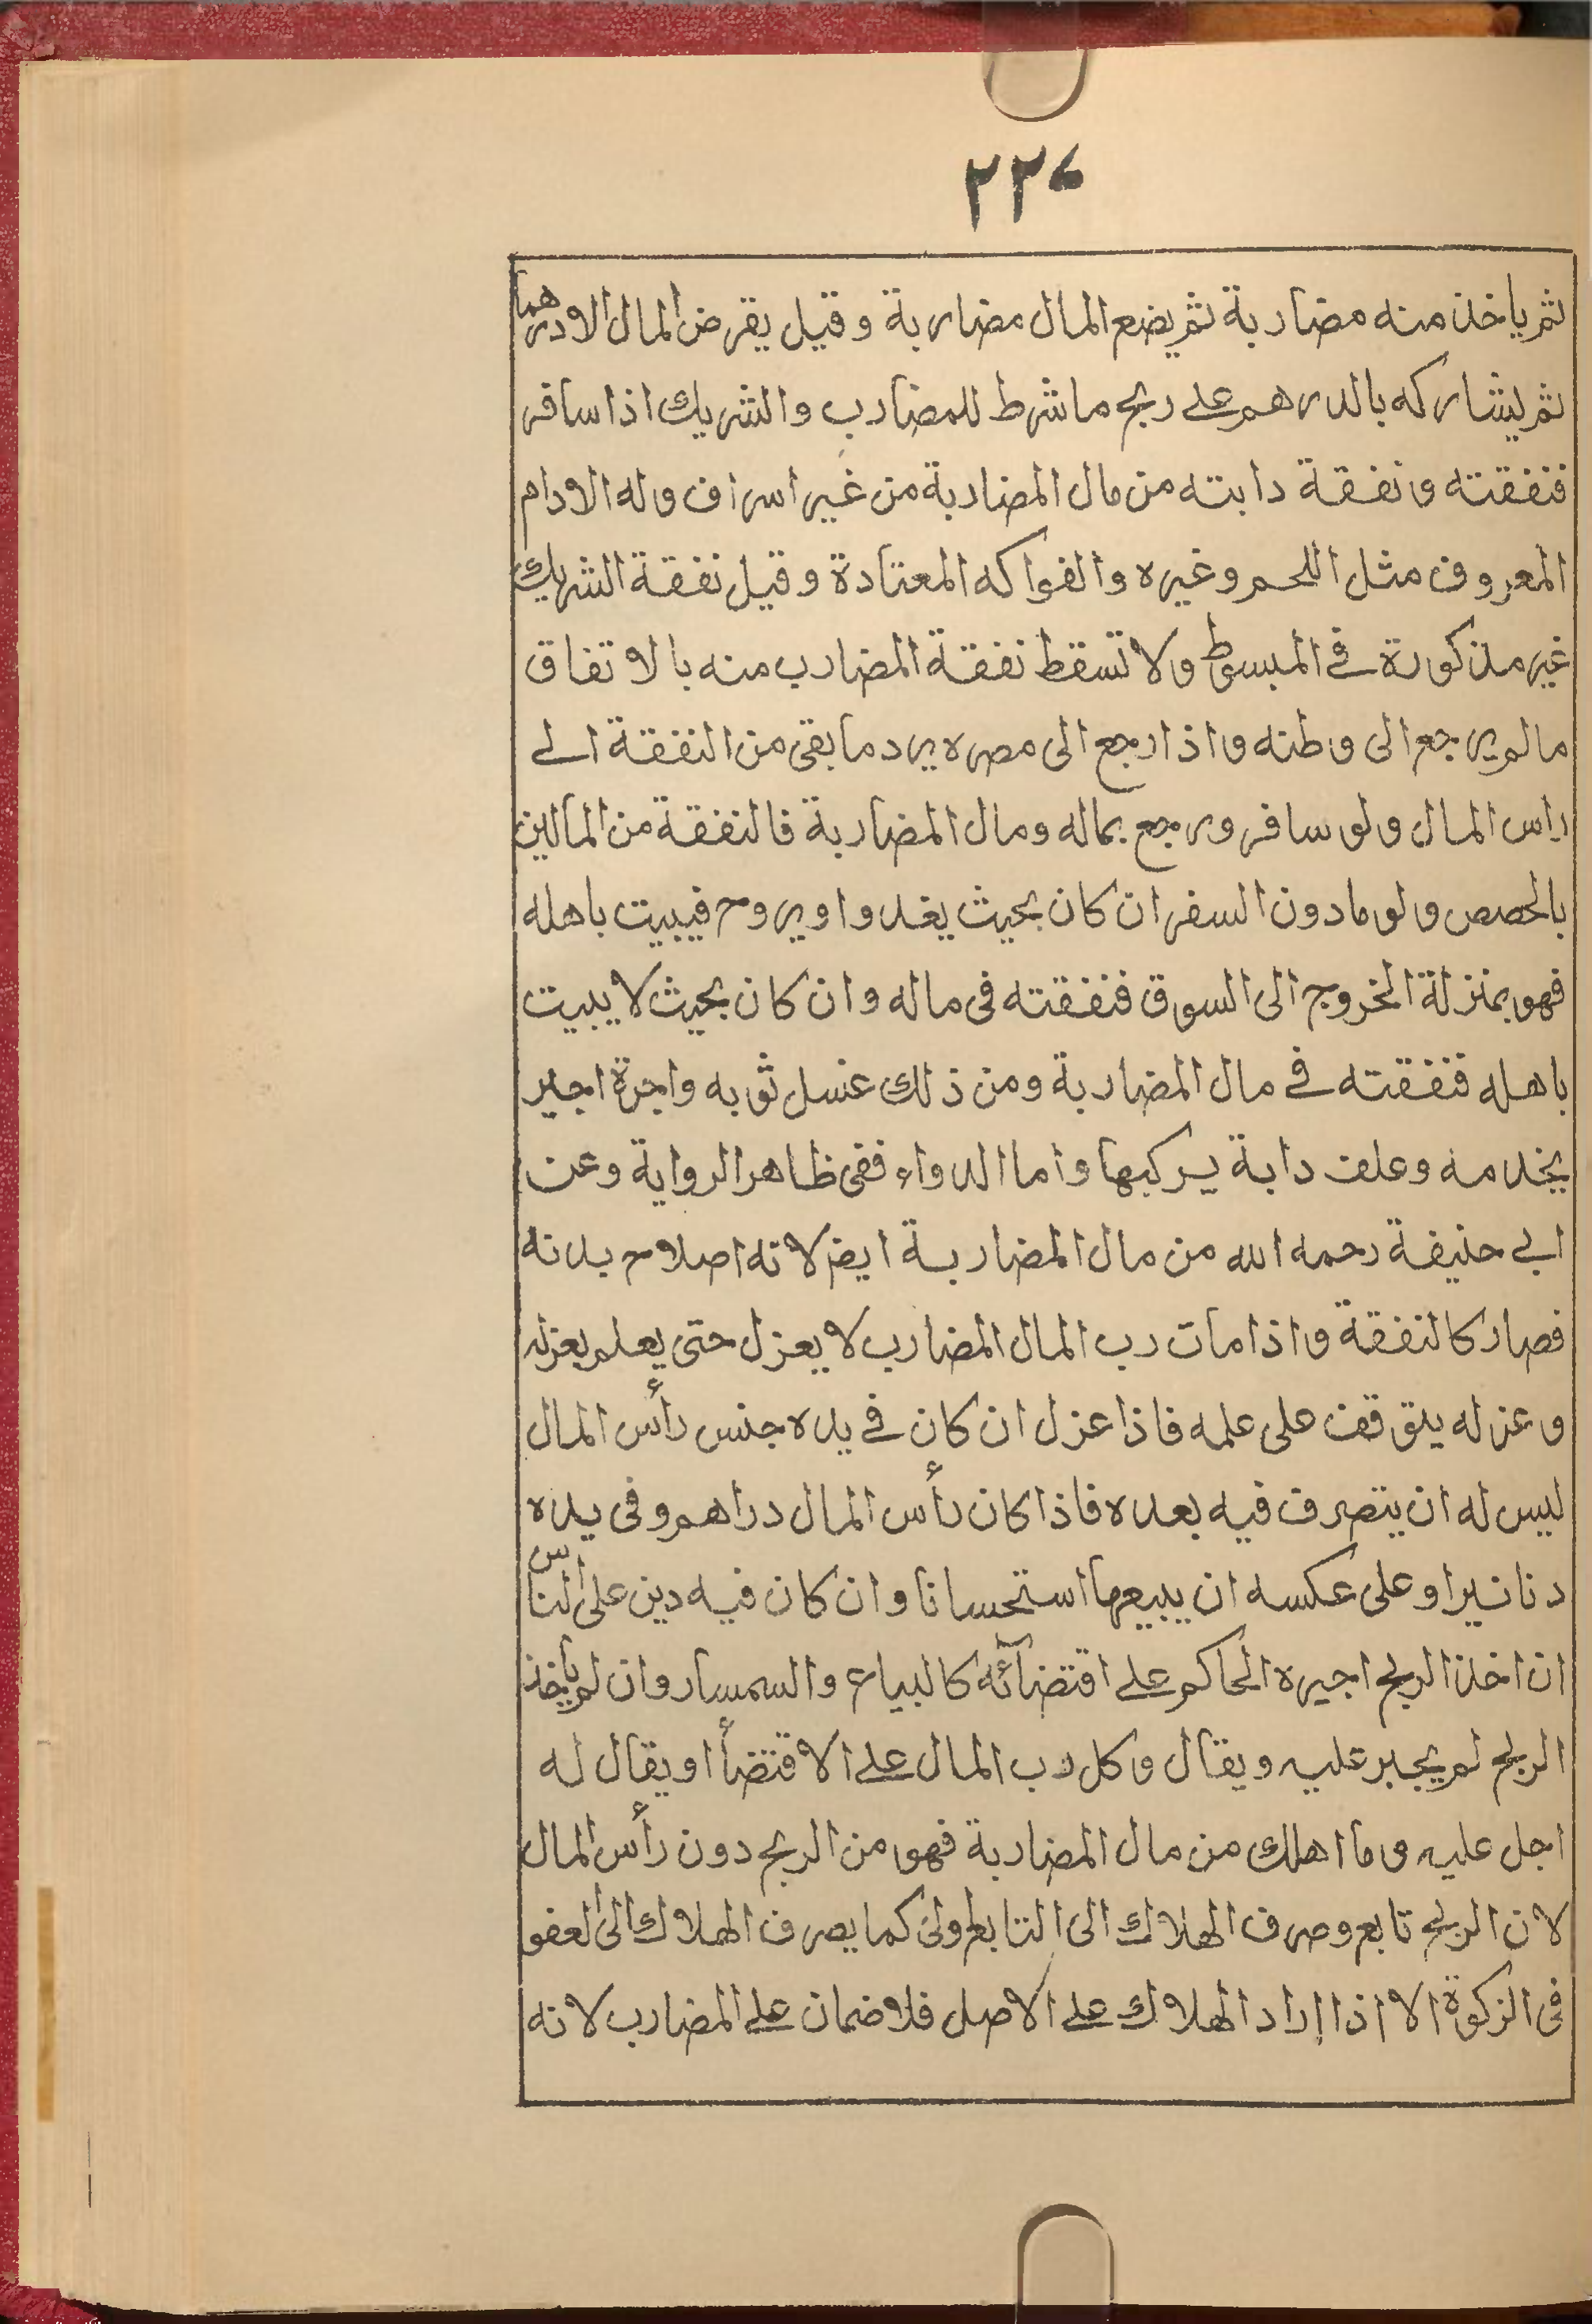 ٢٢٧
ثم ياخذ منه مضاربة ثم يضع المال مضاربة وقيل يقرض المال الا درهما
ثم يشاركه بالدرهم على ربح ما شرط للمضارب والشريك اذا سافر
فنفقته ونفقة دابته من مال المضاربة من غير اسراف وله الادام
المعروف مثل اللحم وغيره والفواكه المعتادة وقيل نفقة الشريك
غير مذكورة في المبسوط ولا تسقط نفقة المضارب منه بالاتفاق
مالم يرجع الى وطنه واذا رجع الى مصره يرد ما بقى من النفقة الے
راس المال ولو سافر ورجع بماله ومال المضاربة فالنفقة من المالين
بالحصص ولو مادون السفر ان كان بحيث يغدوا ويروح فيبيت باهله
فهو بمنزلة الخروج الى السوق فنفقته فى ماله وان كان بحيث لا يبيت
باهله فنفقته في مال المضاربة ومن ذلك غسل ثوبه واجرة اجير
يخدمه وعلف دابة يركبها واما الدواء ففى ظاهر الرواية وعن
ابي حنيفة رحمه الله من مال المضاربة ايضا لانه اصلاح بدنه
فصار كالنفقة واذا مات رب المال المضارب لا يعزل حتى يعلم بعزله
وعزله يتوقف على علمه فاذا عزل ان كان في يده جنس رأس المال
ليس له ان يتصرف فيه بعده فاذا كان رأس المال دراهم وفى يده
دنانيرا وعلى عكسه ان يبيعها استحسانا وان كان فيه دين على الناس
ان اخذ الربح اجيره الحاكم على اقتضائه كالبياع والسمسار وان لم ياخذ
الربح لم يجبر عليه ويقال وكل رب المال على الاقتضأ او يقال له
اجل عليه وما اهلك من مال المضاربة فهو من الربح دون رأس المال
لان الربح تابع وصرف الهلاك الى التابع اولى كما يصرف الهلاك الى العفو
فى الزكوة الا اذا اراد الهلاك على الاصل فلا ضمان على المضارب لانه